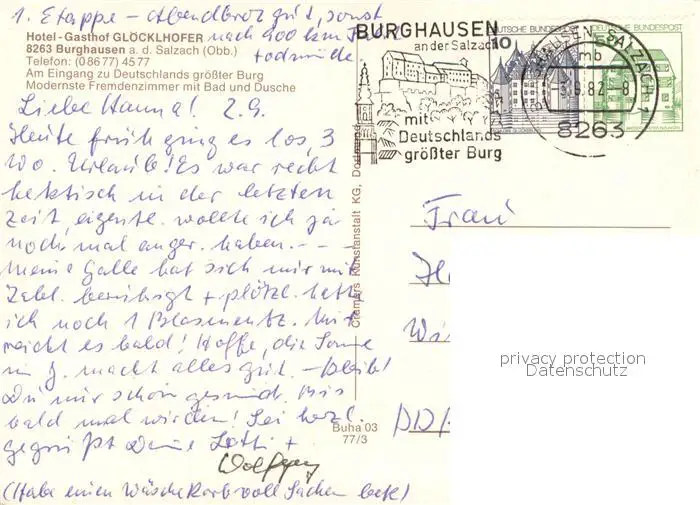 1. Etappe – Abendbrot gut, sonst
nach 900 km Fahrt
todmüde.
Hotel - Gasthof GLÖCKLHOFER
8263 Burghausen a. d. Salzach (Obb.)
Telefon: (0 86 77) 45 77
Am Eingang zu Deutschlands größter Burg
Modernste Fremdenzimmer mit Bad und Dusche
Liebe Hanna! 2.9.
Heute früh ging es los, 3
Wo. Urlaub! Es war recht
hektisch in der letzten
Zeit, eigentl. wollte ich ja
noch mal anger. haben. - - -
Meine Galle hat sich mir mit
Tabl. beruhigt + plötzl. hatte
ich noch 1 Blasenentz. Mir
reicht es bald! Hoffe, die Sonne
in J. macht alles gut. – Bleib'
Du mir schön gesund. Bis
bald mal wieder! Sei herzl.
gegrüßt Deine Lotti +
Wolfgang
(Habe einen Wäschekorb voll Sachen)
BURGHAUSEN
an der Salzach
mit
Deutschlands
größter Burg
DEUTSCHE BUNDESPOST
DEUTSCHE BUNDESPOST
BURGHAUSEN, SALZACH 1
mb
-3.9.82-8
8263
Cramers Kunstanstalt KG, Dortmund
Buha 03
77/3
Frau
privacy protection
Datenschutz